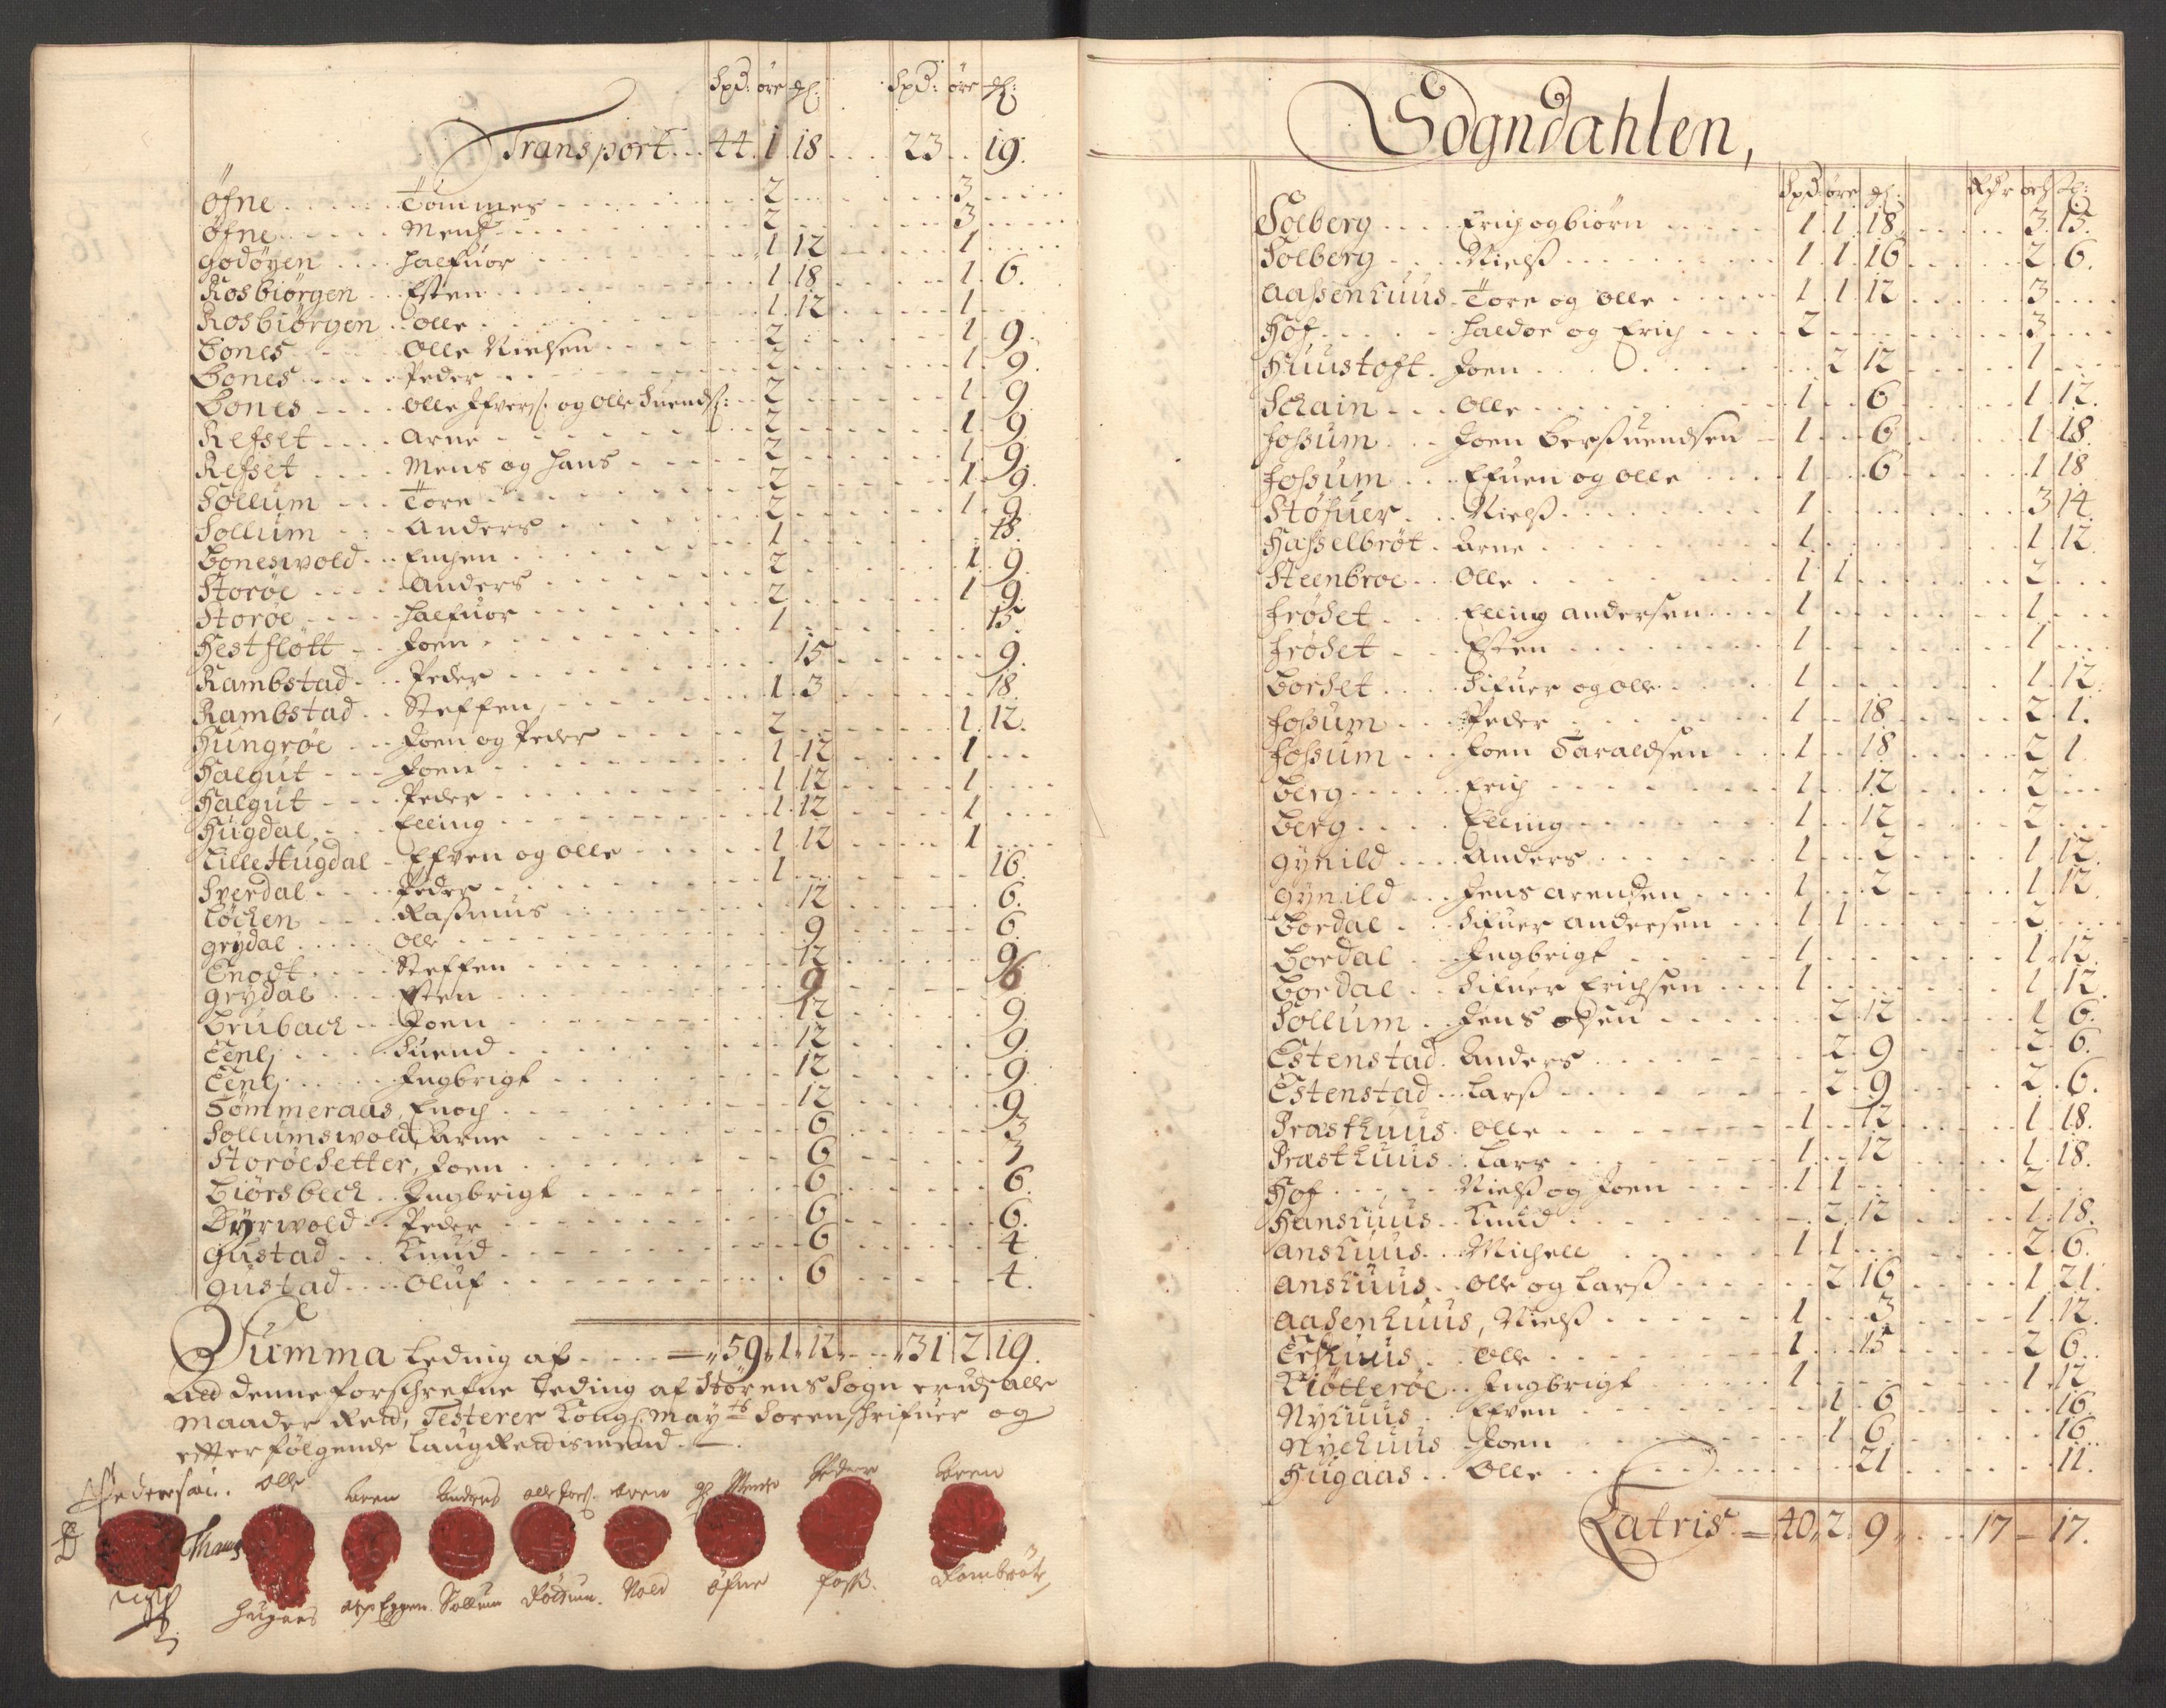 Spd: øre ₰: Spd: øre ₰:
Transport 44 1 18 23 19
Øfne Tommes 2 3
Øfne Mens 2 3
Godøyen Halfuor 1 12 1
Rosbiørgen Esten 1 18 1 6
Rosbiørgen Olle 1 12 1
Bones Olle Nielsen 2 1 9
Bones Peder 2 1 9
Bones Olle Efvers: og Olle Suends: 2 1 9
Refset Arne 2 1 9
Refset Mens og Hans 2 1 9
Sollum Tore 2 1 9
Sollum Anders 2 1 9
Boneswold Enchen 1 15
Storøe Anders 2 1 9
Storøe Halfuor 2 1 9
Hestflott Joen 1 15
Rambstad Peder 15 9
Rambstad Steffen 1 3 18
Hungrøe Joen og Peder 2 1 12
Halgut Joen 1 12 1
Halgut Peder 1 12 1
Hugdal Elling 1 12 1
Lille Hugdal Efven og Olle 1 12 1
Sverdal Peder 1 16
Løchen Rasmus 12 6
Grydal Olle 9 6
Enodt Steffen 12 9
Grydal Esten 9 6
Brubach Joen 12 9
Eene Suend 12 9
Eene Ingbrigt 12 9
Sømmeraas, Enoch 12 9
Sollumswold, Arne 6 3
Storøesetter, Joen 6 3
Biørsbech Ingbrigt 6 6
Byrwold Peder 6 6
Gustad Knud 6 4
Gustad Oluf 6 4
Summa Leding af 59 1 12 31 2 19
Att denne forschrefne Leding af Størens Sogn er udj alle
Maader Rett, Testerer Kongl: May:ts Sorenschrifuer og
effterfølgende Laug Rettismend.
Olle Aren Anders Olle Joens: Aren Mens Peder Aren
Hugaas Eggen Sollum Rødsum Vold Øfne Foss
Sogndahlen,
Spd øre ₰: Rdr ort ß:
Solberg Erich og Biørn 1 1 18 3 15
Solberg Nielß 1 1 16 2 6
Aassenhuus Tore og Olle 1 1 12 3
Hof Haldor og Erich 2 3
Huustoft Joen 2 12 1
Schain Olle 1 6 1 12
Fossum Joen Bersuendsen 1 6 1 18
Fossum Efuen og Olle 1 6 1 18
Støfuer Nielß 1 3 14
Hasselbrøt Arne 1 1 12
Steenbroe Olle 1 1 2
Frøset Elling Andersen 1 1
Frøset Esten 1 1
Borset Sifuer og Olle 1 1 12
Fossum Peder 1 18 2 1
Fossum Joen Taraldsen 1 18 2 1
Berg Erich 1 12 2
Berg Elling 1 12 2
Gynild Anders 1 2 1 12
Gynild Jens Arensen 1 2 1 12
Bordal Sifuer Andersen 1 1 2
Bordal Ingbrigt 1 1 12
Bordal Sifuer Erichsen 1 1 12
Sollum Jens Olsen 2 12 1 6
Estenstad Anders 2 9 2 6
Estenstad Larß 2 9 2 6
Præsthuus Olle 1 12 1 18
Præsthuus Lars 1 12 1 18
Hof Nielß og Joen 1 1 2
Hanshuus Knud 2 12 1 18
Anshuus Michell 1 1 2 6
Anshuus Olle og Larß 2 16 1 21
Aasenhuus, Nielß 1 3 1 12
Eeshuus Olle 1 15 2 6
Kiøtterøe Ingbrigt 1 1 12
Nyhuus Efven 1 6 16
Nyehuus Joen 1 6 16
Hugaas Olle 21 11
Latris 40 2 9 17 17